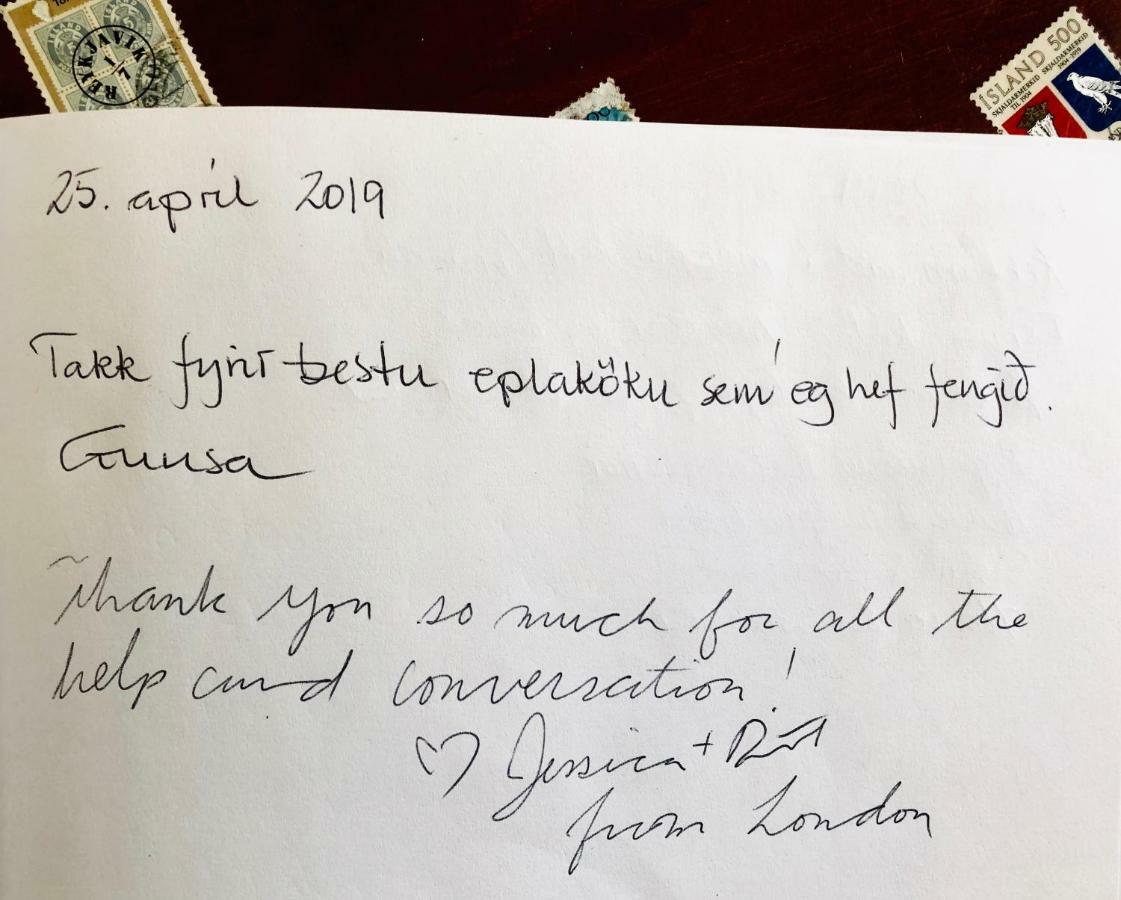 REYKJAVIK
ÍSLAND 500
SKJALDARMERKIÐ
1904-1919
SKJALDARMERKIÐ
TIL 1904
25. apríl 2019
Takk fyrir bestu eplaköku sem ég hef fengið.
Gunsa
Thank you so much for all the
help and conversation!
♡ Jessica +
from London